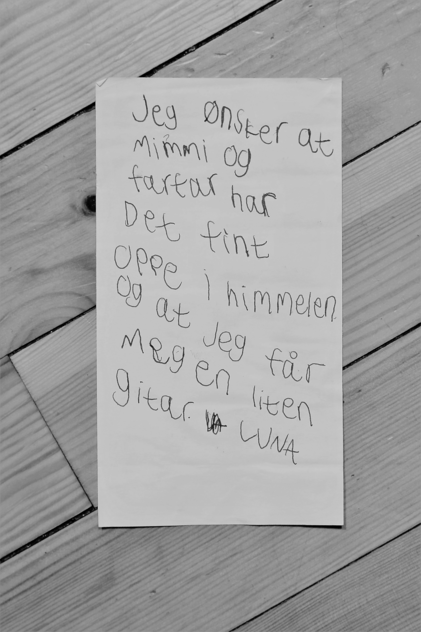 Jeg Ønsker at
Mimmi og
farfar har
Det fint
oppe i himmelen
og at Jeg får
Meg en liten
gitar LUNA